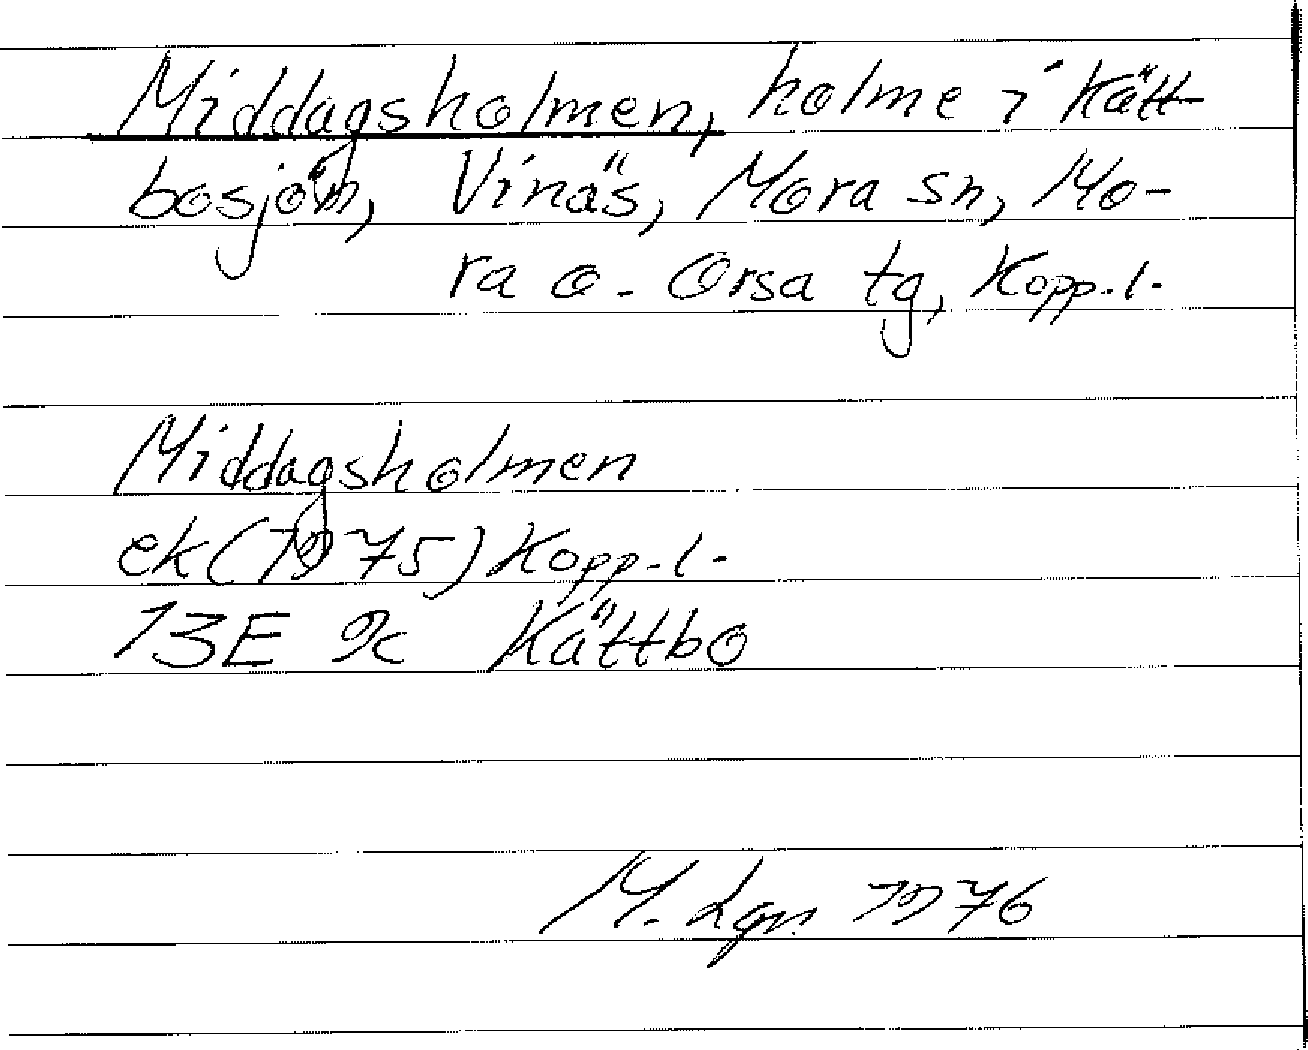 Middagsholmen, holme i Kätt-
bosjön, Vinäs, Mora sn, Mo-
ra o. Orsa tg, Kopp. l.
Middagsholmen
ek (1975) Kopp. l.
13E 9c Kättbo
M. Lgn. 1976